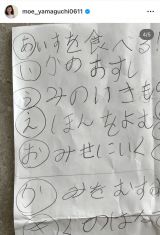 moe_yamaguchi0611
4/5
あいすを食べる!
いかのおすし
うみのいきもの
えほんをよむ
おみせにいく
かみをむすぶ